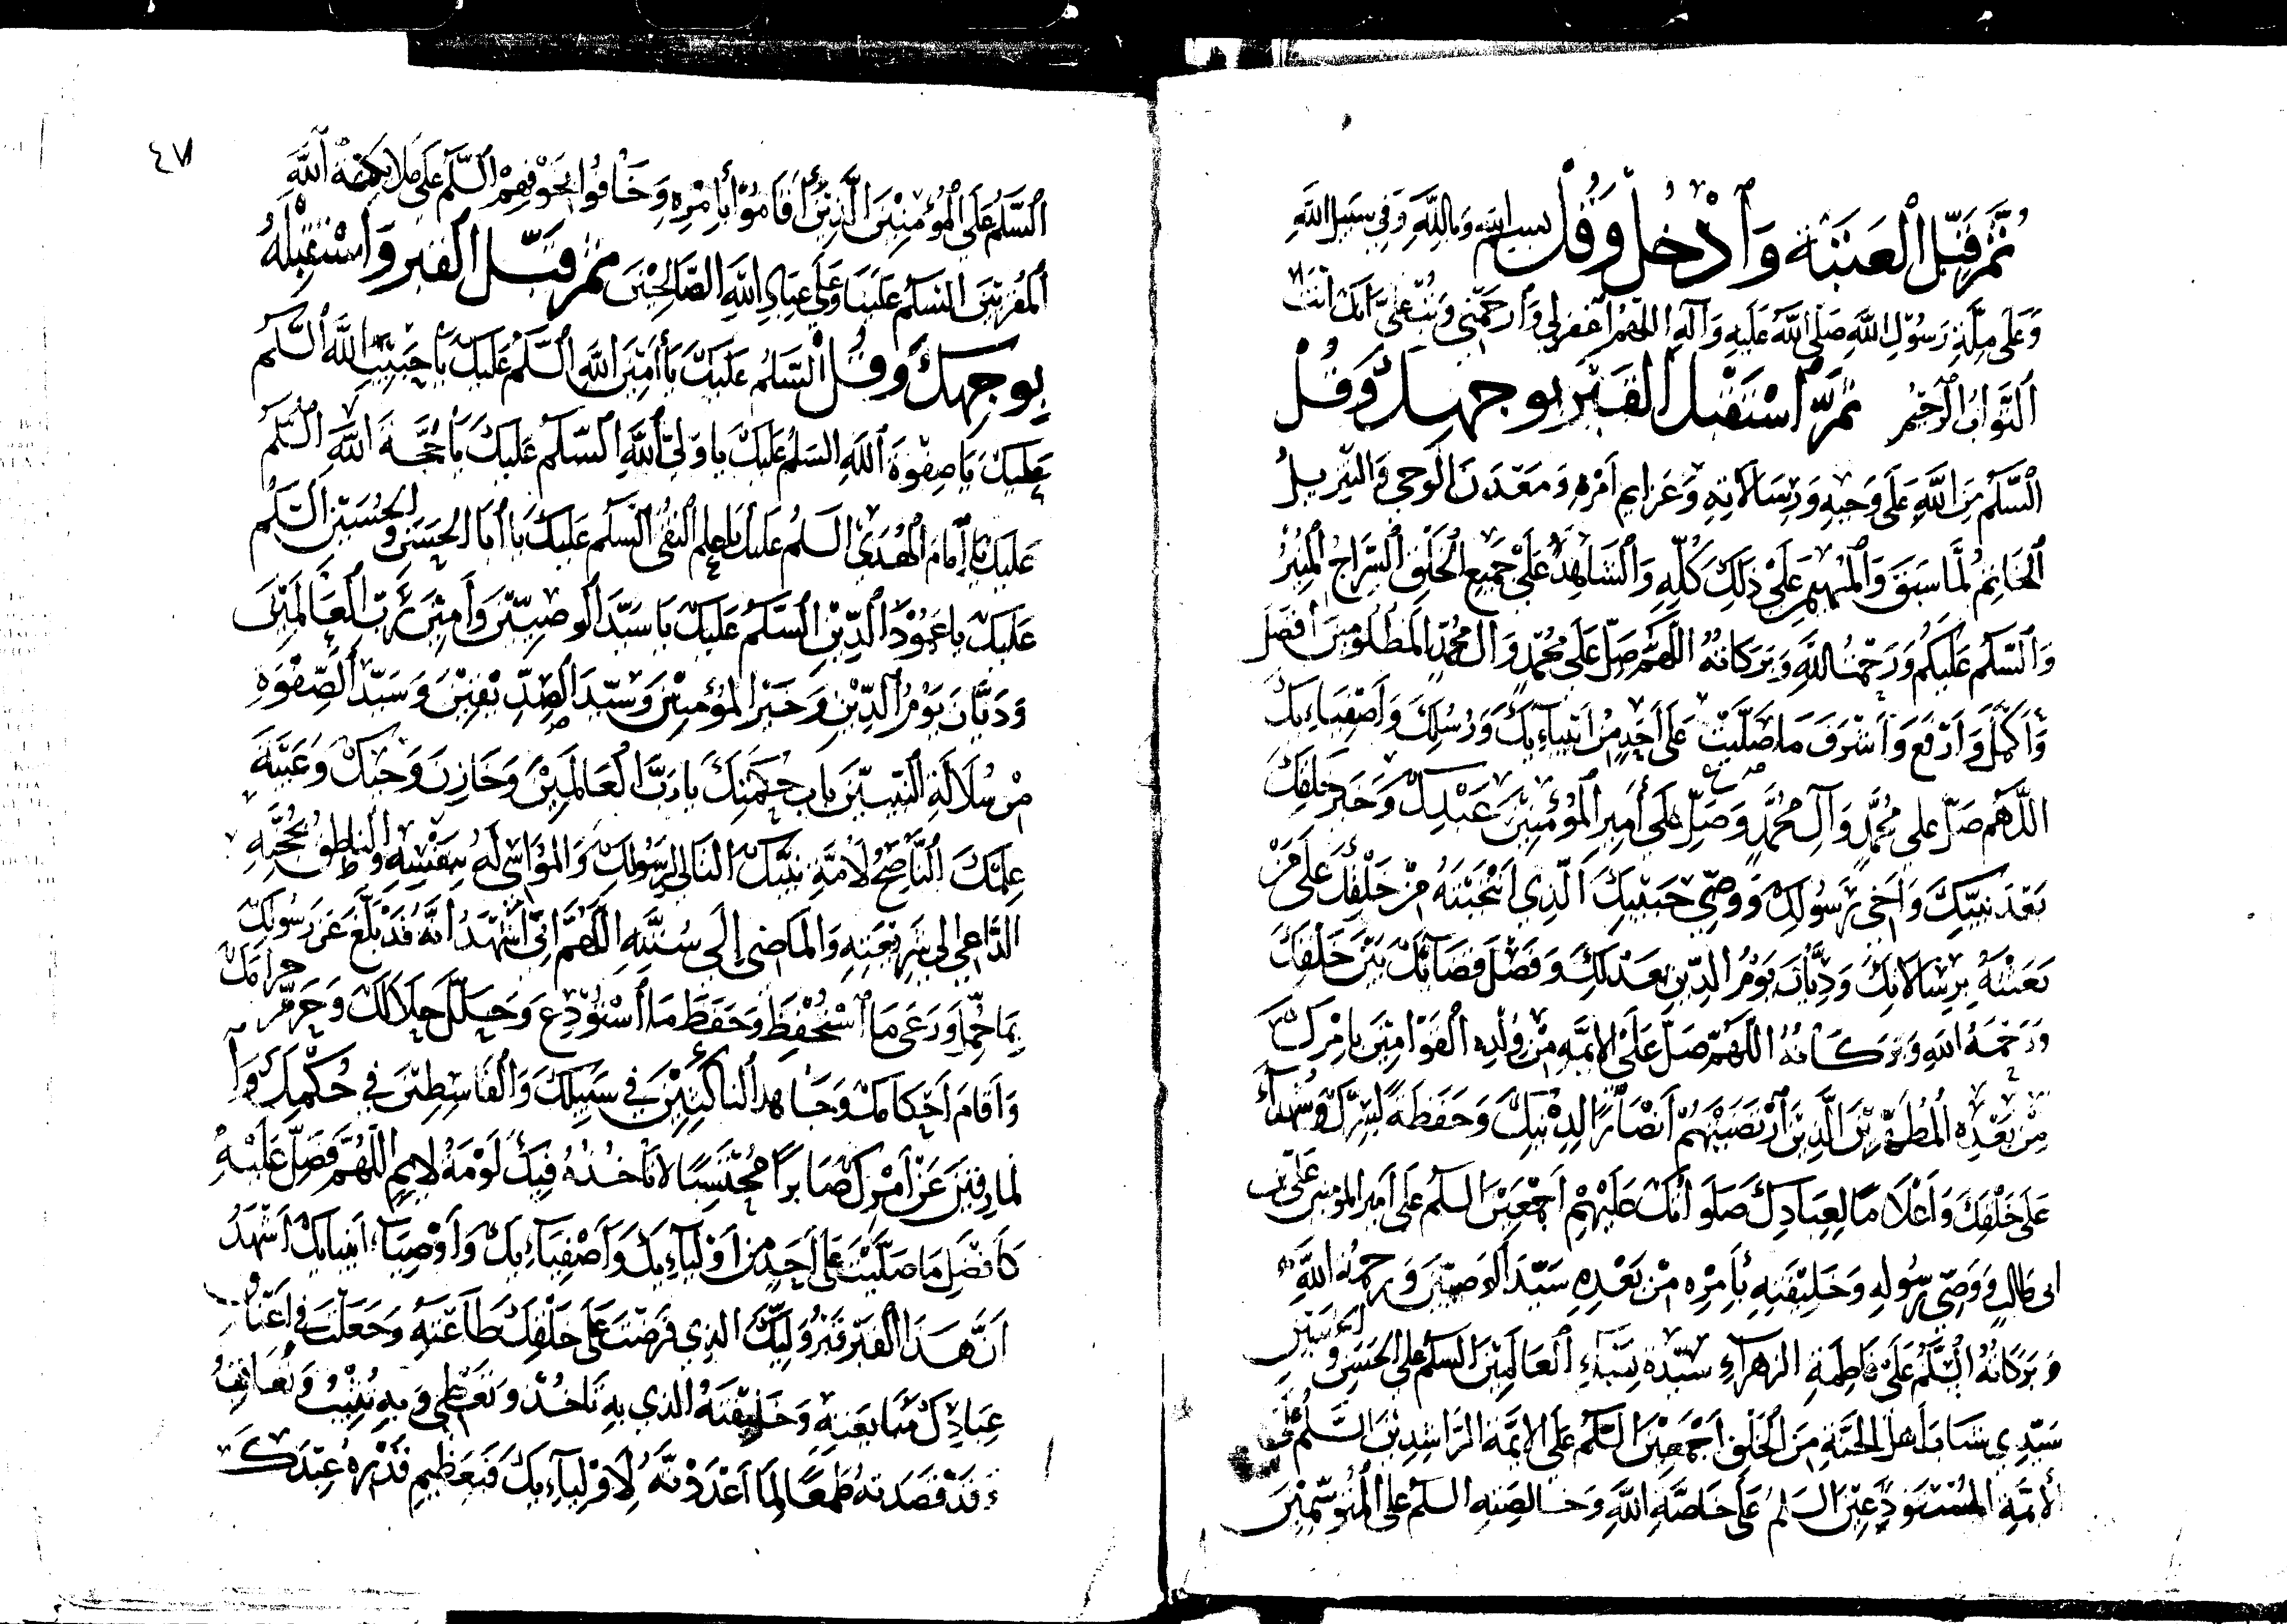 ثُمَّ قَبِّلِ الْعَتَبَةَ وَادْخُلْ وَقُلْ بسم الله وَبِاللَّهِ وَفِي سَبِيلِ اللهِ
وَعَلَى مِلَّةِ رَسُولِ اللَّهِ صَلَّى اللَّهُ عَلَيْهِ وَآلِهِ اللَّهُمَّ اغْفِرْ لِي وَارْحَمْنِي وَتُبْ عَلَيَّ إِنَّكَ أَنْتَ
التَّوَّابُ الرَّحِيمُ ثُمَّ اسْتَقْبِلِ الْقَبْرَ بِوَجْهِكَ وَقُلْ
السَّلَمُ مِنَ اللَّهِ عَلَى وَحْيِهِ وَرِسَالَاتِهِ وَعَزَائِمِ أَمْرِهِ وَمَعْدَنِ الْوَحْيِ وَالتَّنْزِيلِ
الْخَاتِمُ لِمَا سَبَقَ وَالْمُهَيْمِنِ عَلَى ذَلِكَ كُلِّهِ وَالشَّاهِدُ عَلَى جَمِيعِ الْخَلْقِ السِّرَاجُ الْمُنِيرُ
وَالسَّلَمُ عَلَيْكُمْ وَرَحْمَةُ اللَّهِ وَبَرَكَاتُهُ اللَّهُمَّ صَلِّ عَلَى مُحَمَّدٍ وَآلِ مُحَمَّدٍ الْمَظْلُومِينَ أَفْضَلَ
وَأَكْمَلَ وَأَرْفَعَ وَأَشْرَفَ مَا صَلَّيْتَ عَلَى أَحَدٍ مِنْ أَنْبِيَاءِكَ وَرُسُلِكَ وَأَصْفِيَاءِكَ
اللَّهُمَّ صَلِّ عَلَى مُحَمَّدٍ وَآلِ مُحَمَّدٍ وَصَلِّ عَلَى أَمِيرِ الْمُؤْمِنِينَ عَبْدِكَ وَخَيْرِ خَلْقِكَ
بَعْدَ نَبِيِّكَ وَأَخِي رَسُولِكَ وَوَصِيِّ حَبِيبِكَ الَّذِي انْتَجَبْتَهُ مِنْ خَلْقِكَ عَلَى مَنْ
بَعَثْتَهُ بِرِسَالَاتِكَ وَدَيَّانَ يَوْمِ الدِّينِ بِعَدْلِكَ وَفَصْلَ قَضَائِكَ بَيْنَ خَلْقِكَ
وَرَحْمَةُ اللهِ وَبَرَكَاتُهُ اللَّهُمَّ صَلِّ عَلَى الْأَئِمَّةِ مِنْ وُلْدِهِ الْقَوَّامِينَ بِأَمْرِكَ
مِنْ بَعْدِهِ الْمُطَهَّرِينَ الَّذِينَ ارْتَضَيْتَهُمْ أَنْصَارًا لِدِينِكَ وَحَفَظَةً لِسِرِّكَ وَشُهَدَاءَ
عَلَى خَلْقِكَ وَأَعْلَامًا لِعِبَادِكَ صَلَوَاتُكَ عَلَيْهِمْ أَجْمَعِينَ السلم على أمير المؤمنين عَلِيِّ بن
ابى طالب وَوَصِيِّ رَسُولِهِ وَخَلِيفَتِهِ بِأَمْرِهِ مِنْ بَعْدِهِ سَيِّدِ الْوَصِيِّينَ وَرَحْمَةُ اللَّهِ
وَبَرَكَاتُهُ السَّلَمُ عَلَى فَاطِمَةِ الزهراءِ سَيِّدَةِ نِسَاءِ الْعَالَمِينَ السلم على الحَسَنِ وَالْحُسَيْنِ
سَيِّدَيْ شَبَابِ أَهْلِ الْجَنَّةِ مِنَ الْخَلْقِ أَجْمَعِينَ السَّلَمُ عَلَى الْأَئِمَّةِ الرَّاشِدِينَ السَّلَمُ عَلَى
الْأَئِمَّةِ الْمُسْتَوْدَعِينَ السَّلمُ عَلَى خَاصَّةِ اللَّهِ وَخَالِصَتِهِ السلم على الْمُتَوَسِّمِينَ
٤٧
السَّلَمُ عَلَى الْمُؤْمِنِينَ الَّذِينَ أَقَامُوا بِأَمْرِهِ وَخَافُوا بِخَوْفِهِمْ السَّلَمُ عَلَى مَلَائِكَةِ اللَّهِ
الْمُقَرَّبِينَ السَّلَمُ عَلَيْنَا وَعَلَى عِبَادِ اللَّهِ الصَّالِحِينَ ثم قَبِّلِ القبر وَاسْتَقْبِلْهُ
بِوَجْهِكَ وَقُلْ السَّلَمُ عَلَيْكَ يَا أَمِينَ اللَّهِ السَّلَمُ عَلَيْكَ يَا حَبِيبَ اللَّهِ السَّلَمُ
عَلَيْكَ يَا صِفْوَةَ اللَّهِ السَّلَمُ عَلَيْكَ يا وَلِيَّ اللَّهِ السَّلَمُ عَلَيْكَ يَا حُجَّةَ اللَّهِ السَّلَمُ
عَلَيْكَ يَا إِمَامَ الْهُدَى السَّلَمُ عَلَيْكَ يَا عَلَمَ التُّقَى السَّلَمُ عَلَيْكَ يَا أَبَا الْحَسَنِ وَالْحُسَيْنِ السَّلَمُ
عَلَيْكَ يَا عَمُودَ الدِّينِ السَّلَمُ عَلَيْكَ يَا سَيِّدَ الْوَصِيِّينَ وَأَمِينَ رَبِّ الْعَالَمِينَ
وَدَيَّانَ يَوْمِ الدِّينِ وَخَيْرَ الْمُؤْمِنِينَ وَسَيِّدَ الصِّدِّيقِينَ وَسَيِّدَ الصِّفْوَةِ
مِنْ سُلَالَةِ النَّبِيِّينَ بَابَ حِكْمَتِكَ يَا رَبَّ الْعَالَمِينَ وَخَازِنَ وَحْيِكَ وَعَيْبَةَ
عِلْمِكَ النَّاصِحُ لِأُمَّةِ نَبِيِّكَ التَّالِي لِرَسُولِكَ وَالْمُوَاسِي لَهُ بِنَفْسِهِ وَالنَّاطِقُ بِحُجَّتِهِ
الدَّاعِي إِلَى شَرِيعَتِهِ وَالْمَاضِي إِلَى سُنَّتِهِ اللَّهُمَّ إِنِّي أَشْهَدُ أَنَّهُ قَدْ بَلَّغَ عَنْ رَسُولِكَ
بِمَا حُمِّلَ وَرَعَى مَا اسْتُحْفِظَ وَحَفِظَ مَا اسْتُودِعَ وَحَلَّلَ حَلَالَكَ وَحَرَّمَ حرامك
وَأَقَامَ أَحْكَامَكَ وَجَاهَدَ النَّاكِثِينَ فِي سَبِيلِكَ وَالْقَاسِطِينَ فِي حُكْمِكَ وَا
لْمَارِقِينَ عَنْ أَمْرِكَ صَابِرًا مُحْتَسِبًا لَا تَأْخُذُهُ فِيكَ لَوْمَةُ لَائِمٍ اللَّهُمَّ فَصَلِّ عَلَيْهِ
كَأَفْضَلِ مَا صَلَّيْتَ عَلَى أَحَدٍ مِنْ أَوْلِيَاءِكَ وَأَصْفِيَاءِكَ وَأَوْصِيَاءِ أَنْبِيَائِكَ أَشْهَدُ
أَنَّ هَذَا الْقَبْرَ قَبْرُ وَلِيِّكَ الَّذِي فَرَضْتَ عَلَى خَلْقِكَ طَاعَتَهُ وَجَعَلْتَ فِي أَعْنَاقِ
عِبَادِكَ مُبَايَعَتَهُ وَخَلِيفَتُهُ الَّذِي بِهِ تَأْخُذُ وَتُعْطِي وَبِهِ تُثِيبُ وَتُعَاقِبُ
وَقَدْ قَصَدْتُهُ طَمَعًا لِمَا أَعْدَدْتَهُ لِأَوْلِيَاءِكَ فَبِعَظِيمِ قَدْرِهِ عِنْدَكَ